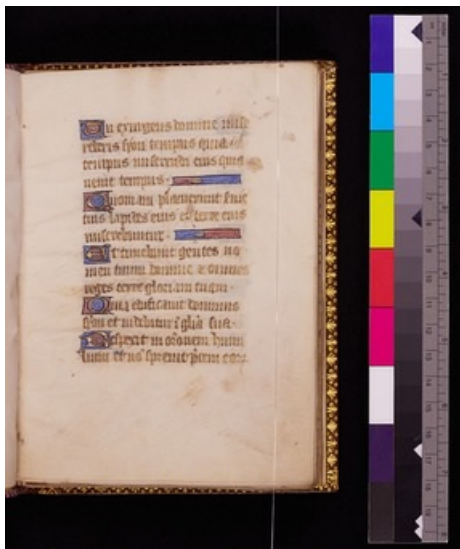 Tu exurgens domine mise
reberis syon tempus quia
tempus miserendi eius quia
uenit tempus
Quoniam placuerunt seruis
tuis lapides eius et terre eius
miserebuntur
Et timebunt gentes no
men tuum domine et omnes
reges terre gloriam tuam
Quia edificauit dominus
syon et uidebitur i glia sua
Respexit in oronem humi
lium et no spreuit precem eor